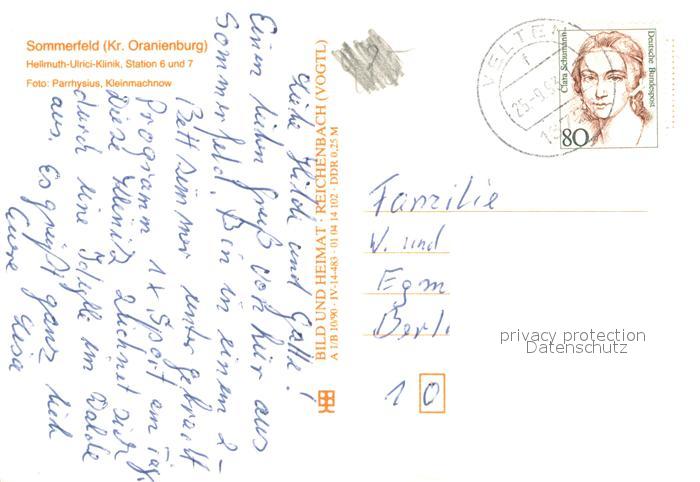 Sommerfeld (Kr. Oranienburg)
Hellmuth-Ulrici-Klinik, Station 6 und 7
Foto: Parrhysius, Kleinmachnow
Liebe Hilde und Gatte!
Einen lieben Gruß von hier aus
Sommerfeld. Bin in einem 2-
Bettzimmer untergebracht
Programm 1x Sport am Tag.
Diese Klinik zeichnet sich
durch eine Idylle im Walde
aus. Es grüßt ganz lieb
Eure
BILD UND HEIMAT · REICHENBACH (VOGTL)
A I/B 10/90 · IV-14-483 · 01 04 14 102 · DDR 0,25 M
VELTEN
25-9.93
Clara Schumann
Deutsche Bundespost
80
Familie
W. und
Egm
Berli
1 0
privacy protection
Datenschutz